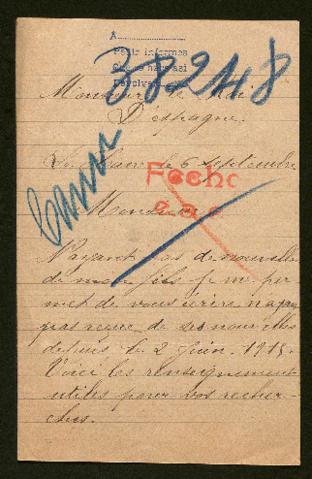 A
Pedir informes
38248
Monsieur le Roi
D'espagne.
le 6 septembre
Fecho
Monsieur
N'ayant pas de nouvelle
de mon fils je me per
met de vous écrire n'ayan
pas reçue de ses nouvelles
depuis le 2 Juin 1915.
Voici les renseignement
utiles pour vos recher-
ches.